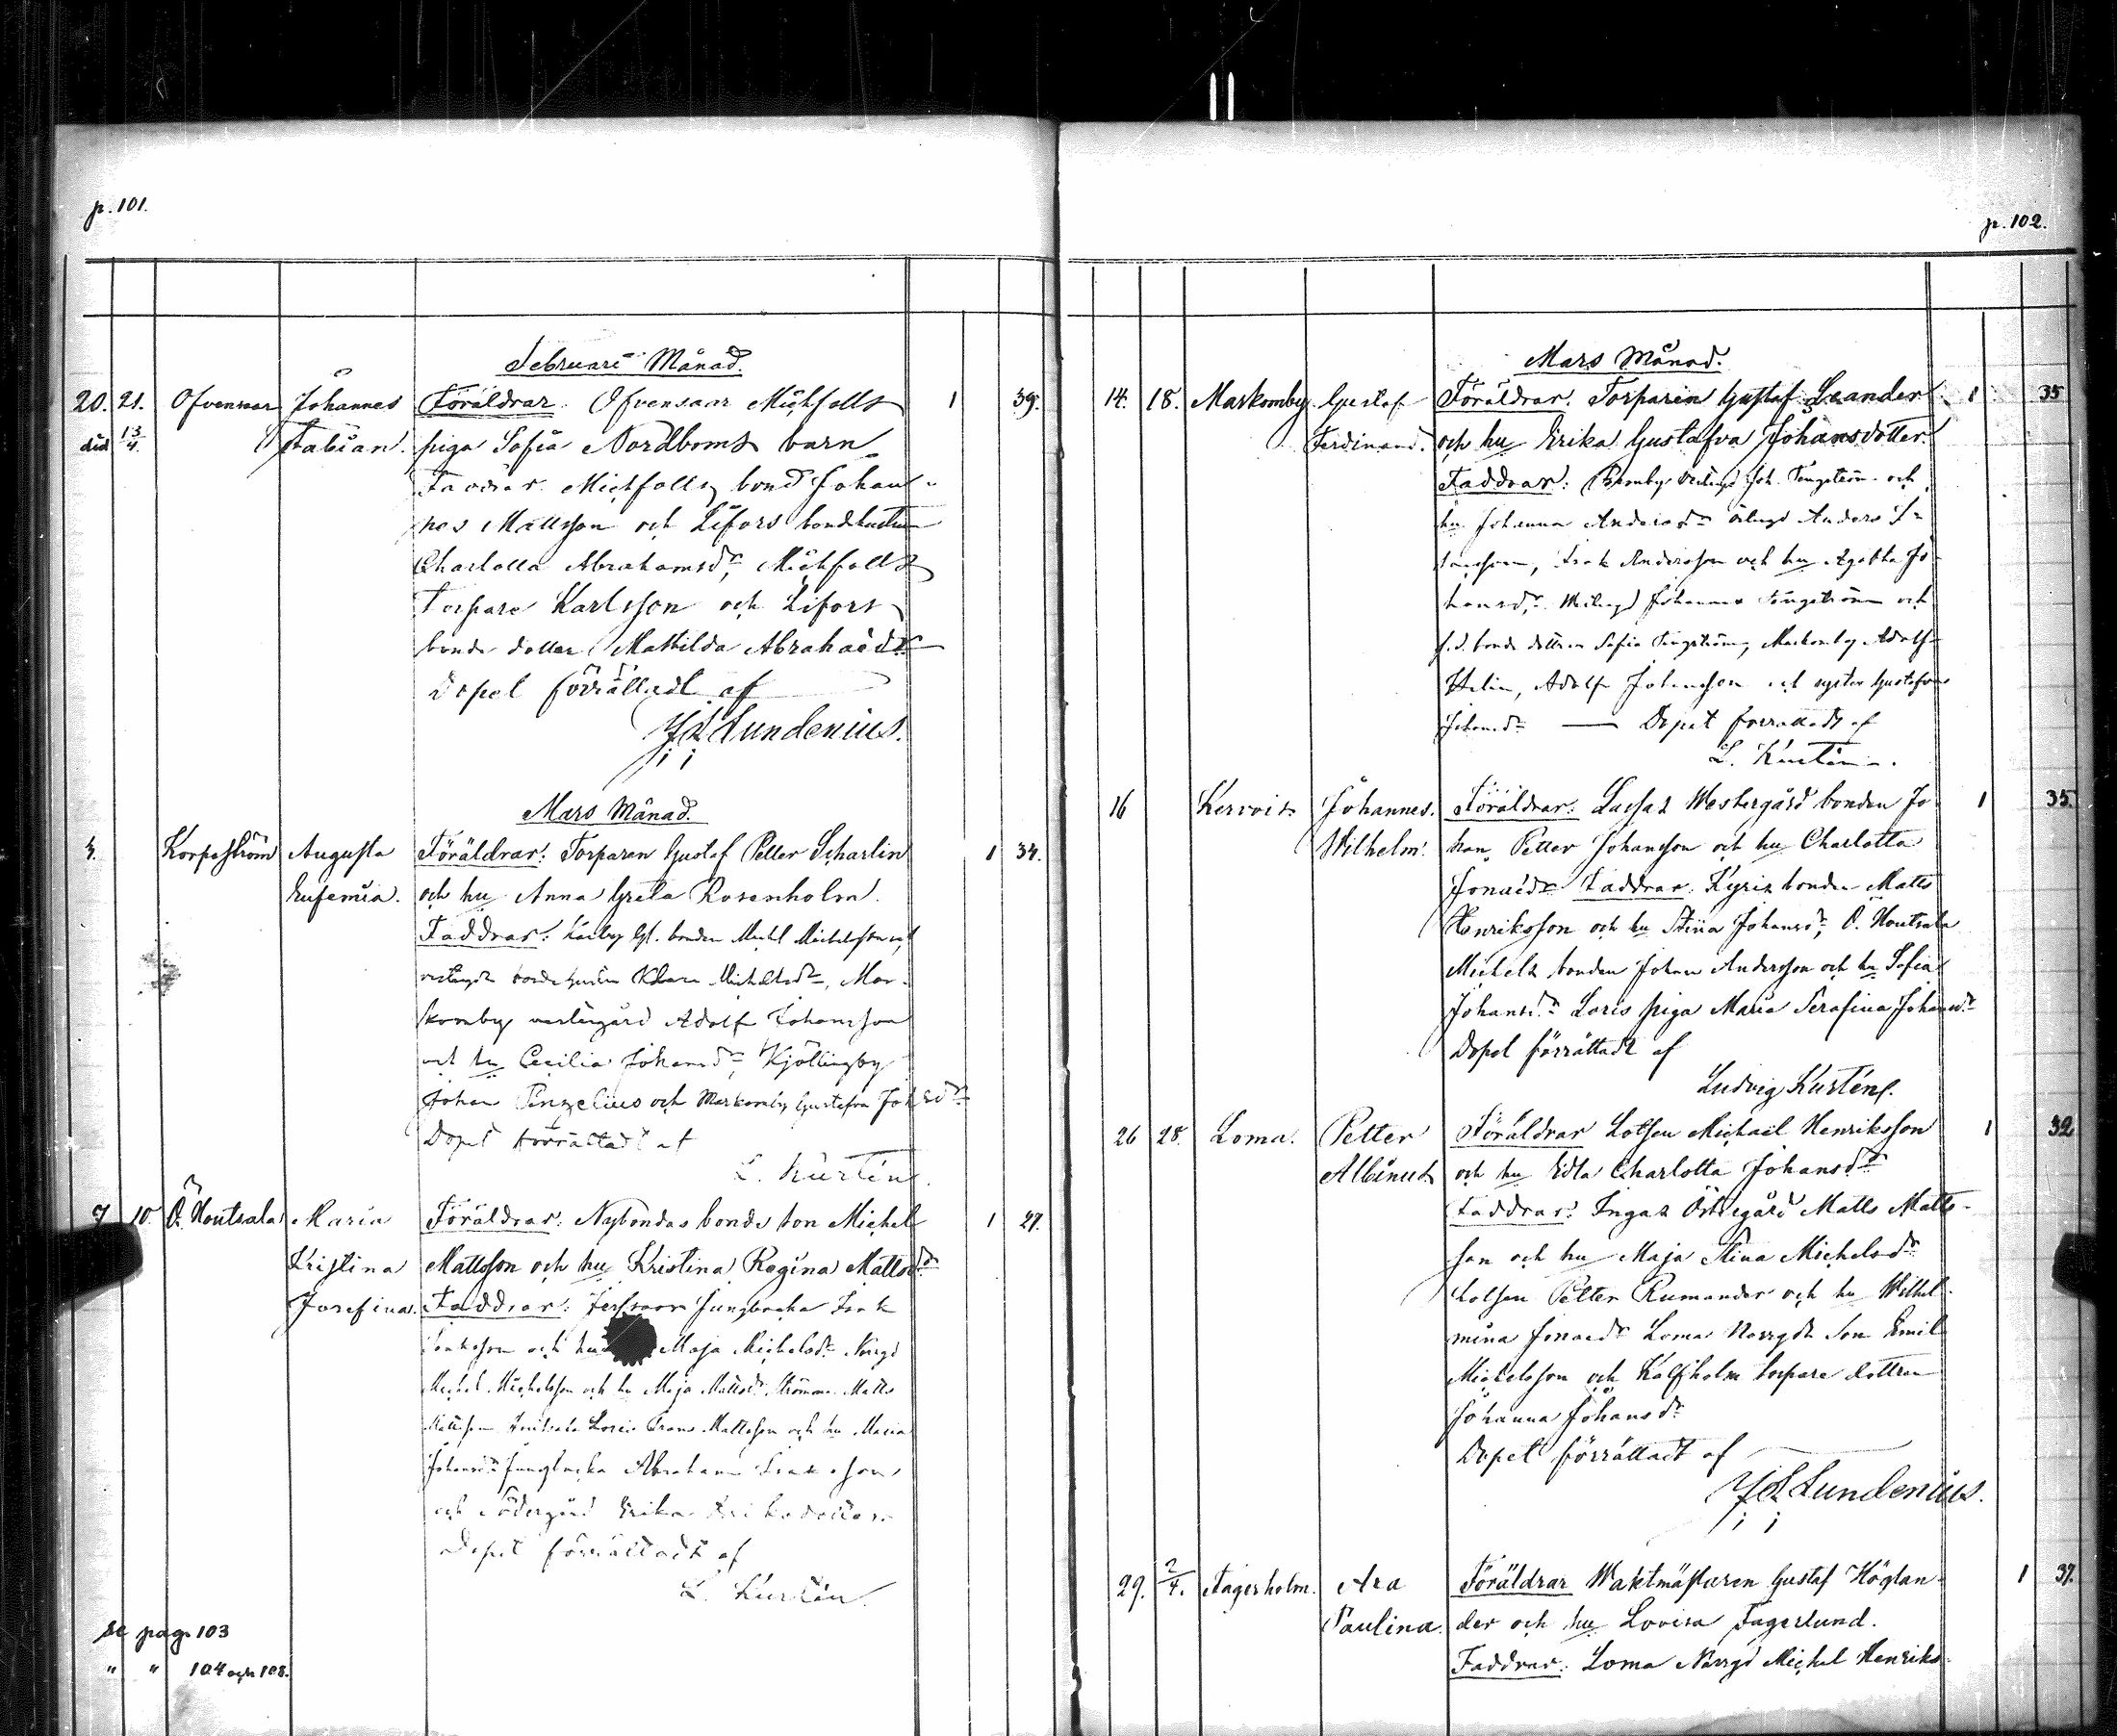 p. 101.
Februari Månad.
20. 21. Ofvensaar Johannes Föräldrar. Ofvensaar Michfolts 1 39.
död 13/4. Fabian. piga Sofia Nordboms barn
Faddrar. Michfolts bond Johan-
nes Mattsson och Lifors bondhustrun
Charlotta Abrahamsdr, Michfolts
Torpare Karlsson och Lifors
bonde dotter Mathilda Abrahasdr
Dopet förrättadt af
Lundenius.
Mars Månad.
Korpoström Augusta Föräldrar: Torparen Gustaf Petter Scharlin 1 34.
Eufemia. och hu Anna Greta Rosenholm.
Faddrar: bonden Michelsson och
Michelsdr, Mar-
skomby vestergård Adolf Johansson
och hu Cecilia Johansdr, Kjöllingby
Johan och Markomby Gustafva
Dopet förrättadt af
L. Kurtén.
7 10. Ö. Houtsala Maria Föräldrar: Nybondas bonde son Michel 1 27.
Kristina Mattsson och hu Kristina Regina Mattsdr
Josefina. Faddrar: Jungbacka Isak
Isaksson och hu Maja Michelsdr Norrgd
Michel Michelsson och hu Maja Mattsdr, Strömma Matts
Mattsson Houtsala Loris Frans Mattsson och hu Maria
Johansdr Jungbacka Abraham Isaksson
och Södergård Erika
Dopet förrättadt af
L. Kurtén.
se pag. 103
" " 104 och 108.
p. 102.
Mars Månad.
14. 18. Markomby Gustaf Föräldrar: Torparen Gustaf Leander 1 35
Ferdinand. och hu Erika Gustafva Johansdotter.
Faddrar: Joh. Tengström och
hu Johanna Andersdr Anders
Isak Andersson och hu Agatha Jo-
hansdr. Johannes Tengström och
f.d. bonde dottren Sofia Tengström, Markomby Adolf
Helin, Adolf Johansson och syster Gustafva
Johansdr — Dopet förrättadt af
L. Kurtén.
16 Kervois Johannes Föräldrar: Lassas Westergård bonden Jo- 1 35.
Wilhelm. han Petter Johansson och hu Charlotta
Jonasdr Faddrar: Kyris bonden Matts
Henriksson och hu Stina Johansdr, Ö. Houtsala
Michels bonden Johan Andersson och hu Sofia
Johansdr Loris piga Maria Serafina Johansdr
Dopet förrättadt af
Ludvig Kurtén.
26 28. Loma. Petter Föräldrar Lotsen Michael Henriksson 1 32
Albinus och hu Edla Charlotta Johansdr
Faddrar: Ingas Östregård Matts Matts-
son och hu Maja Stina Michelsdr
Lotsen Petter Rumander och hu Wilhel-
mina Jonasdr Loma Norrgds Son Emil
Michelsson och Kalfholm torpare dottren
Johanna Johansdr
Dopet förrättadt af
Lundenius.
29. 2/4. Fagerholm. Ara Föräldrar Waktmästaren Gustaf Höglan- 1 37.
Paulina. der och hu Lovisa Fagerlund.
Faddrar: Loma Norrgd Michel Henriks-